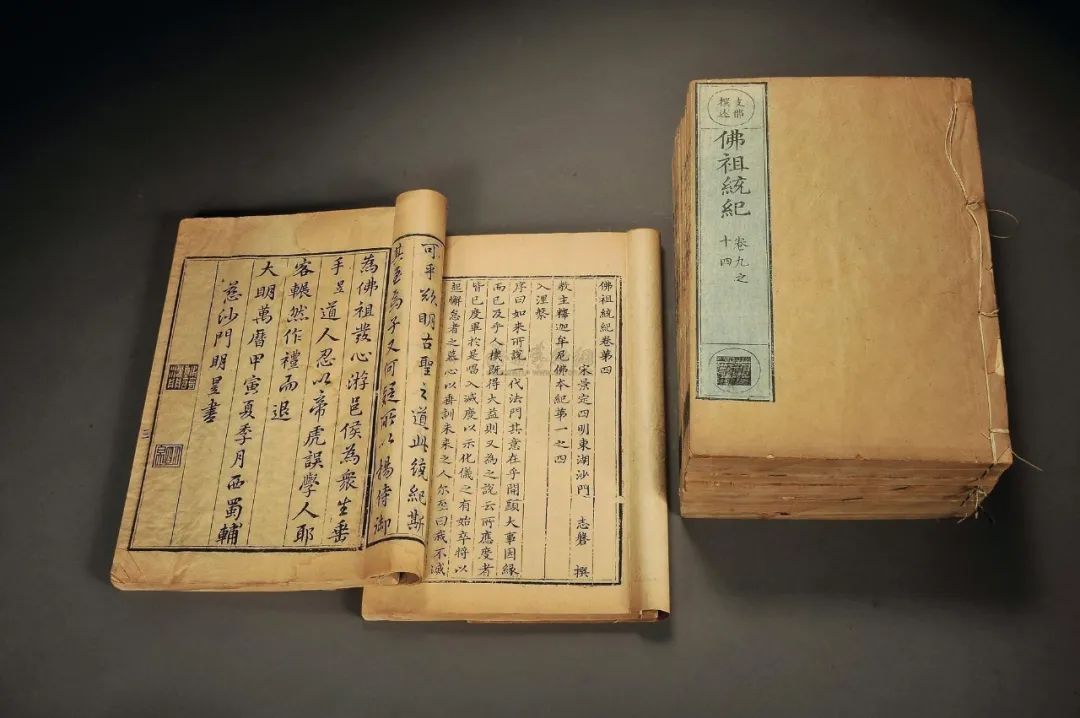 支那
撰述
佛祖統紀
卷九之
十四
佛祖統紀卷第四
宋景定四明東湖沙門 志磐 撰
教主釋迦牟尼佛本紀第一之四
入涅槃
序曰如來所說一代法門其意在乎開顯大事因緣
而已及乎人機既得大益則又為之說云所應度者
皆已度畢於是唱入滅度以示化儀之有始卒將以
起懈怠者之慕心以垂訓未來之人尔曰我不滅
可乎欲明古聖之道此統紀斯
其至為子又何疑所以揚侍御
為佛祖發心游邑侯為衆生垂
手昱道人忍以帝虎誤學人耶
客輾然作禮而退
大明萬曆甲寅夏季月西蜀輔
慈沙門明昱書